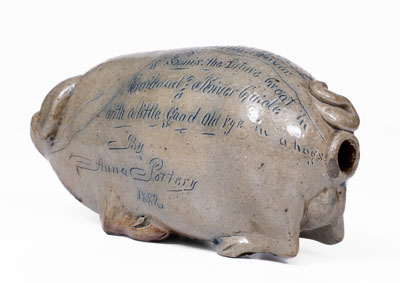 St Louis the Future Great in
Railroad & River Guide
with a little Good old rye in a hogs
By
Anna Pottery
1882